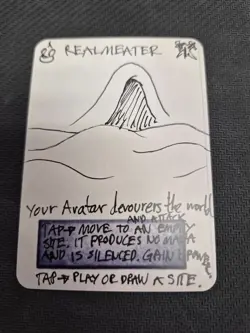 REALMEATER
Your Avatar devourers the world
AND ATTACK
TAP → MOVE TO AN EMPTY
SITE. IT PRODUCES NO MANA
AND IS SILENCED. GAIN
TAP → PLAY OR DRAW A SITE.